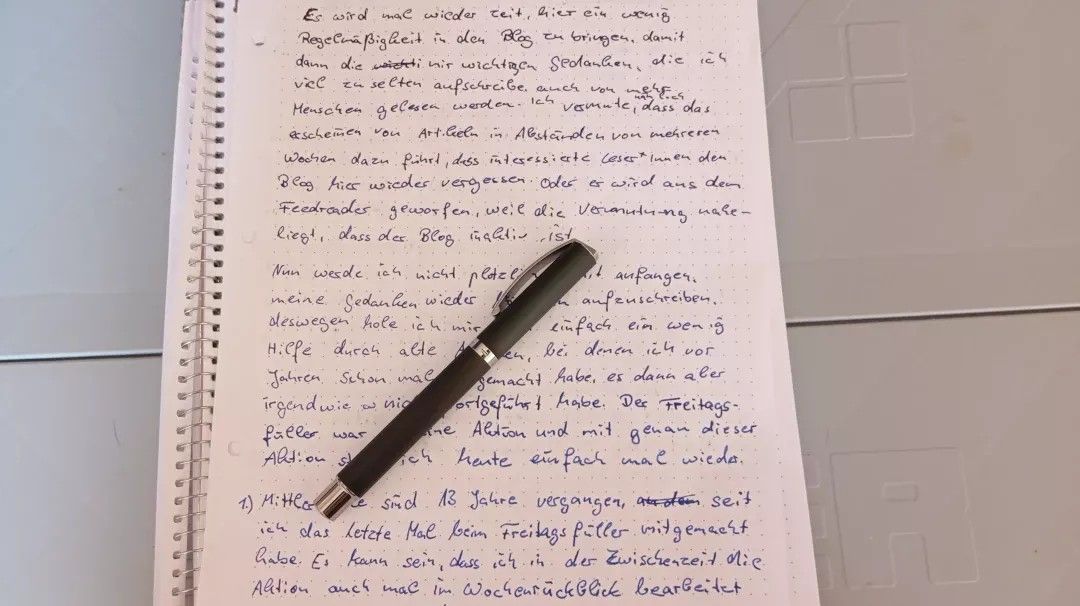 Es wird mal wieder zeit, hier ein wenig
Regelmäßigkeit in den Blog zu bringen, damit
dann die mir wichtigen Gedanken, die ich
viel zu selten aufschreibe auch von mehr
Menschen gelesen werden. Ich vermute, nämlich dass das
erscheinen von Artikeln in Abständen von mehreren
Wochen dazu führt, dass interessierte Leser*innen den
Blog hier wieder vergessen. Oder er wird aus dem
Feedreader geworfen, weil die Vermutung nahe-
liegt, dass der Blog inaktiv ist
Nun werde ich nicht anfangen,
meine Gedanken wieder aufzuschreiben.
deswegen hole ich mir einfach ein wenig
Hilfe durch alte bei denen ich vor
Jahren schon mal gemacht habe, es dann aber
irgendwie so habe. Der Freitags-
füller war Aktion und mit genau dieser
Aktion ich heute einfach mal wieder.
1.) sind 13 Jahre vergangen, seit
ich das letzte Mal beim Freitagsfüller mitgemacht
habe. Es kann sein, dass ich in der Zwischenzeit die
Aktion auch mal im Wochenrückblick bearbeitet